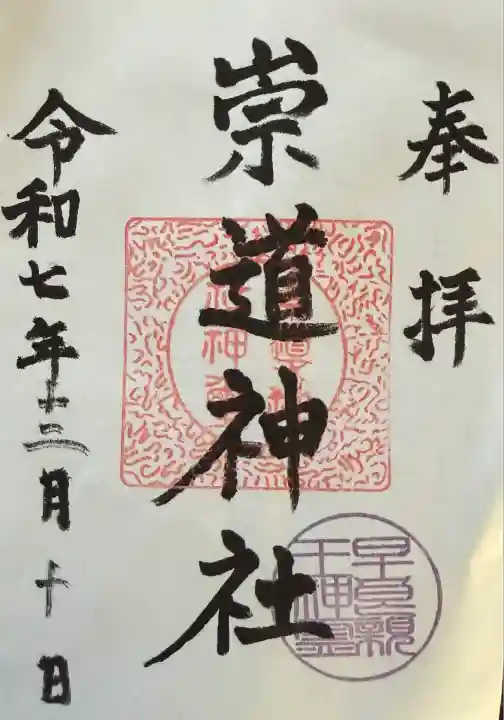 奉拝
崇道神社
令和七年十二月十日
早良親
王神霊